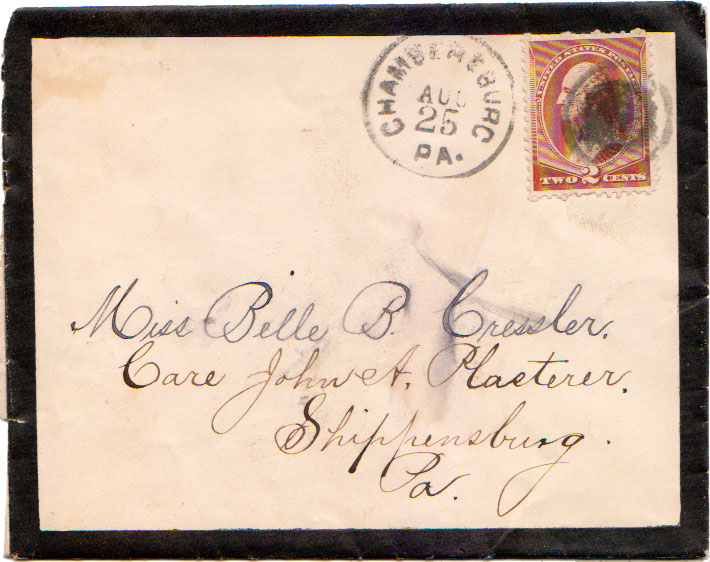 CHAMBERSBURG
AUG
25
PA.
UNITED STATES POSTAGE
TWO 2 CENTS
Miss Belle B. Cressler.
Care John A. Plasterer.
Shippensburg.
Pa.